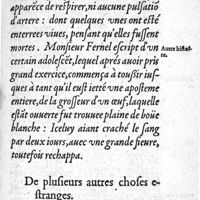 apparẽce de respirer, ni aucune pulsatiõ
d'artere : dont quelques vnes ont esté
enterrees viues, pensant qu'elles fussent
mortes. Monsieur Fernel escript d'vn
certain adolescẽt, lequel après auoir pris
grand exercice, commença à toussir ius-
ques à tant qu'il eust ietté vne aposteme
entiere, de la grosseur d'vn œuf, laquelle
estãt ouuerte fut trouuee plaine de boüe
blanche : Iceluy aiant craché le sang
par deux iours, auec vne grande fieure,
toutefois rechappa.
Autre histoi-
re.
De plusieurs autres choses e-
stranges.